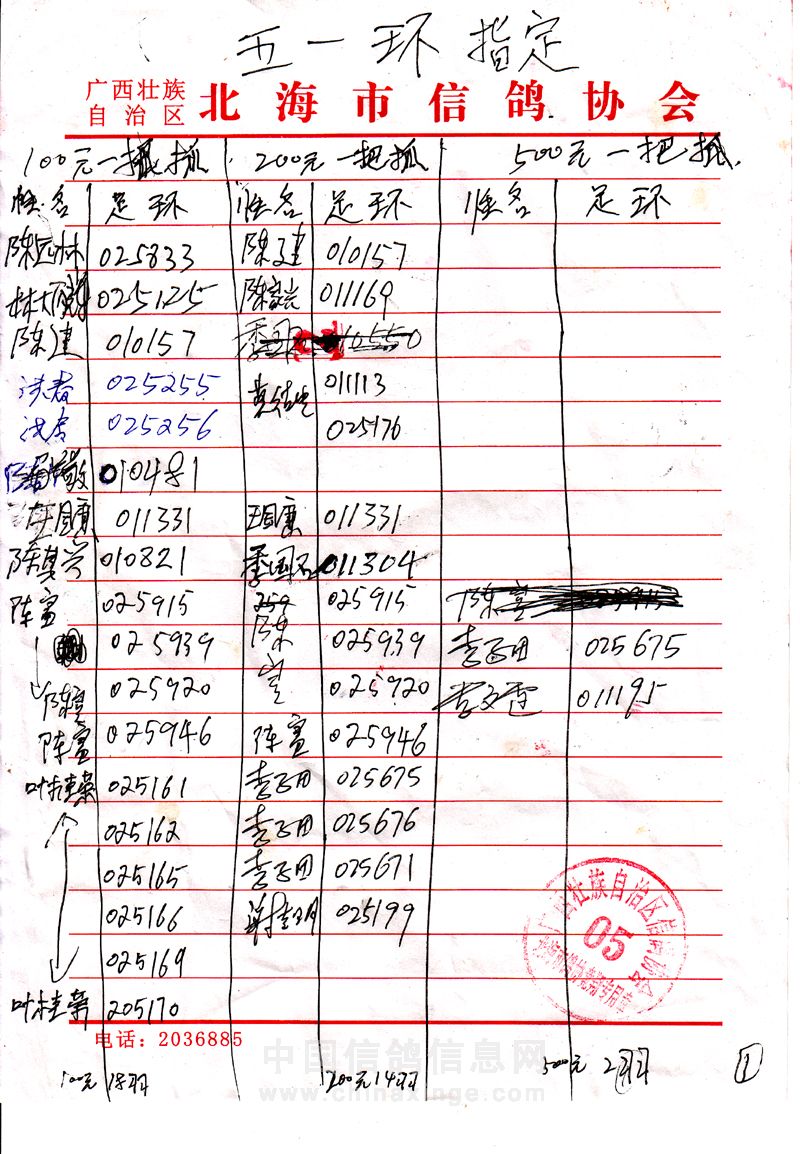 五一环 指定
广西壮族自治区 北海市信鸽协会
100元一把抓 200元一把抓 500元一把抓
姓名 足环 姓名 足环 姓名 足环
陈远林 025833 陈建 010157
025125 陈 011169
陈建 010157 季国 010550
025255 黄 011113
025256 025176
陈 010481
国康 011331 国康 011331
陈其兴 010821 季国 011304
陈宣 025915 259 025915 陈宣 025915
025939 陈 025939 李 025675
陈宣 025920 宣 025920 李文 011195
陈宣 025946 陈宣 025946
叶桂荣 025161 李 025675
025162 李 025676
025165 李 025671
025166 谢 025199
025169
叶桂荣 205170
广西壮族自治区信鸽协会
05
电话：2036885
中国信鸽信息网
www.chinaxinge.com
100元 18羽 200元 14羽 500元 2羽 1